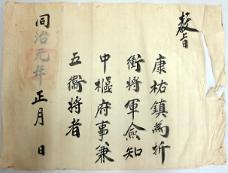 教旨
康祐鎮為折
衝將軍僉知
中樞府事兼
五衛將者
同治元年 正月 日